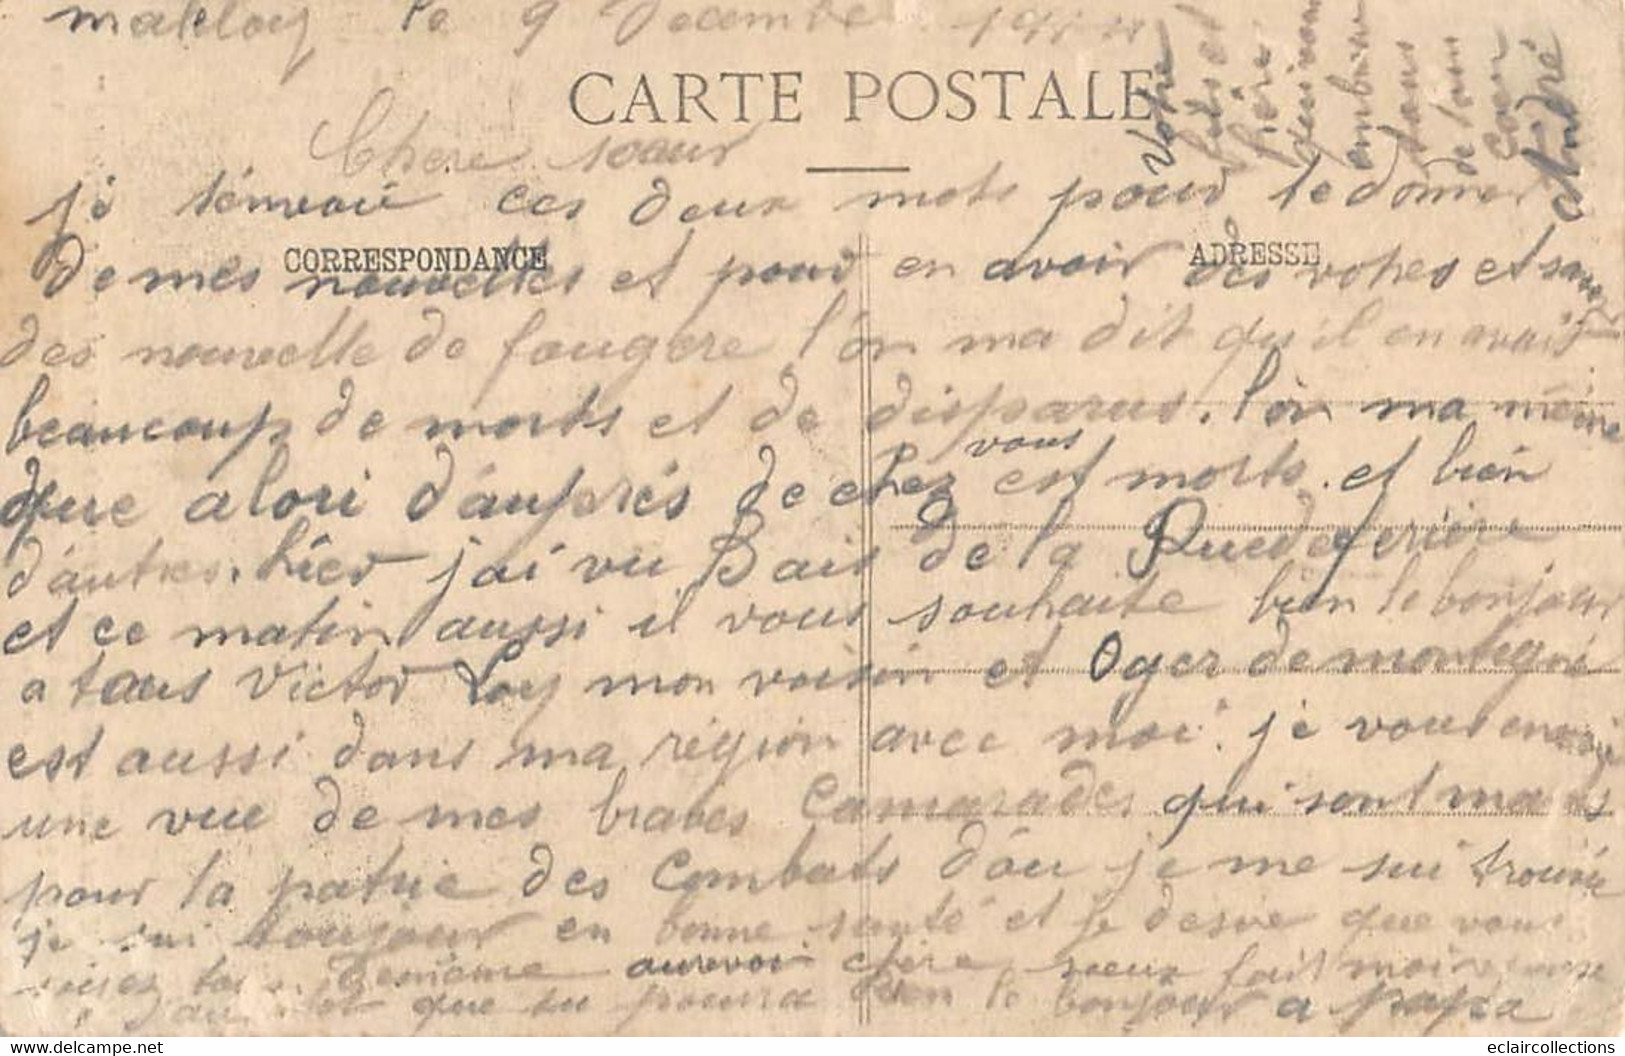 le 9 Decembre
CARTE POSTALE
Chere soeur
je t'envoie ces deux mots pour te donner
CORRESPONDANCE
ADRESSE
de mes nouvelles et pour en avoir des votres et
des nouvelle de fougere l'on ma dit qu'il en avait
beaucoup de morts et de disparus. l'on ma même
que alori d'auprés de chez vous est morts. et bien
d'autres. hier j'ai vu Bais de la
et ce matin aussi il vous souhaite bien le bonjour
a tous Victor Loy mon voisin et Oger de montigné
est aussi dans ma région avec moi. je vous envoie
une vue de mes braves Camarades qui sont morts
pour la patrie des Combats d'ou je me sui trouvé
je sui toujour en bonne santé et je desire que vous
de meme aurevoir chere soeur fait moi reponse
que tu pourra bien le bonjour a papa
Votre
fils et
frère
qui vous
embrasse
tous
de loin
Coeur
André
eclaircollections
www.delcampe.net